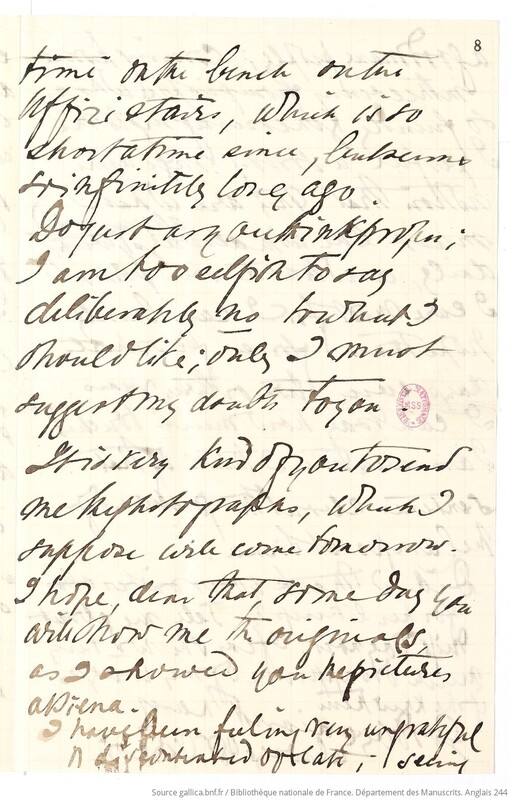 8
time on the bench on the
Uffizi stairs, which is so
short a time since, but seems
so infinitely long ago.
Do just as you think proper;
I am too selfish to say
deliberately no to what I
should like; only I must
suggest my doubts to you.
It is very kind of you to send
me the photographs, which I
suppose will come tomorrow.
I hope, dear, that, some day you
will show me the originals,
as I showed you the pictures
at Siena.
I have been feeling very ungrateful
& discontented of late; seeing
Source gallica.bnf.fr / Bibliothèque nationale de France. Département des Manuscrits. Anglais 244